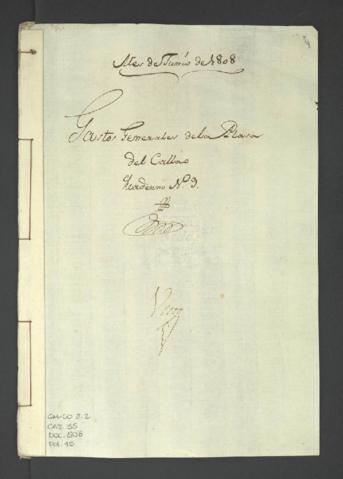 Mes de Junio de 1808
Gastos Generales de la Plaza
del Callao
Quaderno N.º 9.
GM-CO 2.2
CAJ. 35
DOC. 506